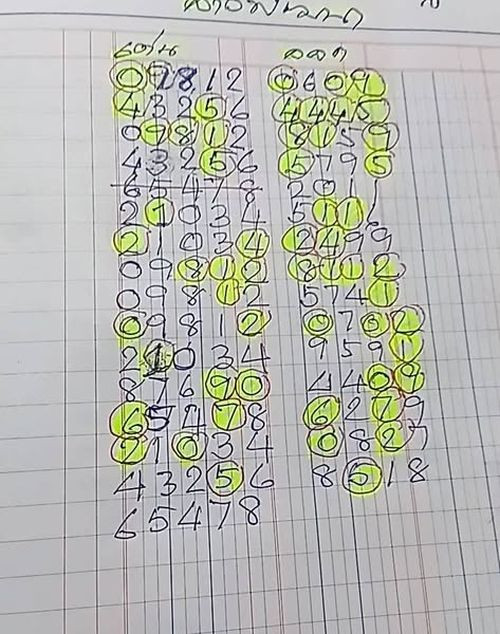 เด่น ออก
09812 0609
43256 4445
09812 8159
43256 5795
65478 2011
21034 5111
21034 2499
09812 8112
09812 5741
09812 0702
21034 9591
87690 4409
65478 6279
21034 0827
43256 8518
65478